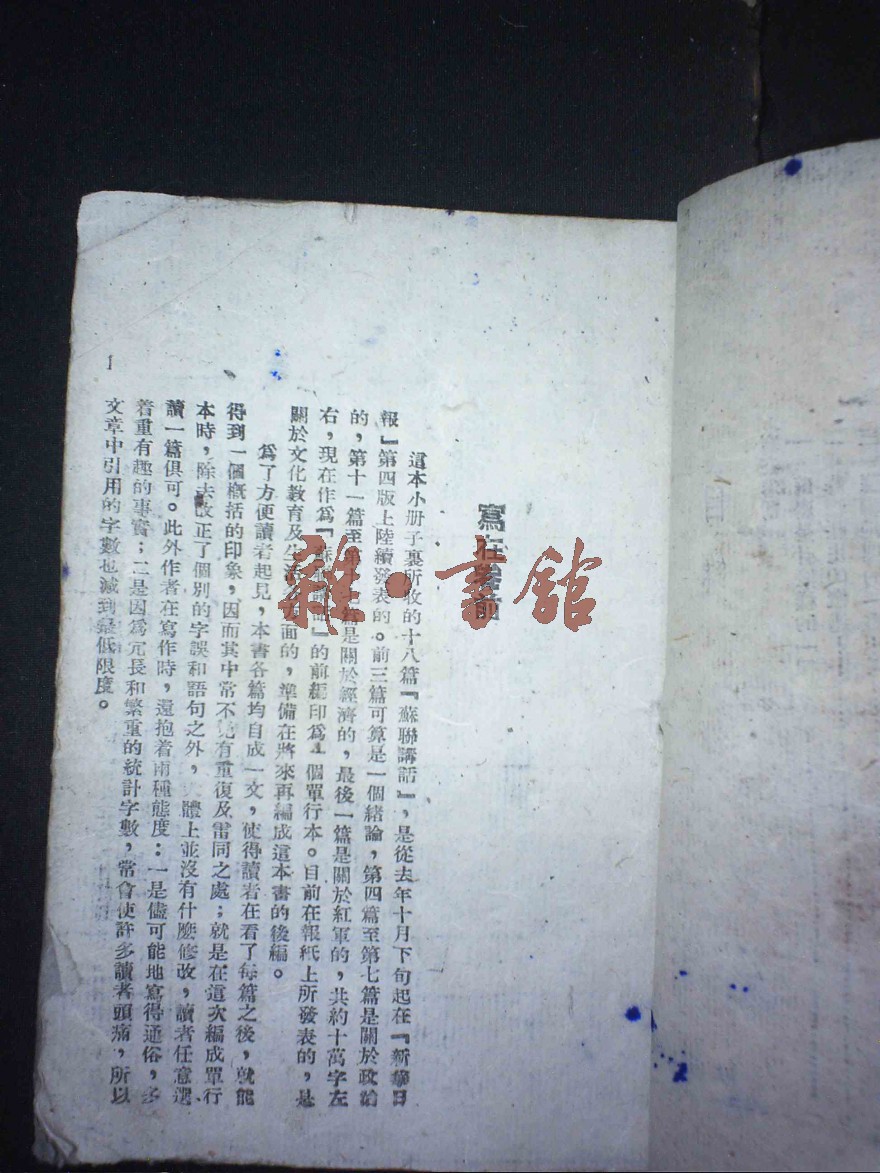 寫在卷前
這本小册子裏所收的十八篇『蘇聯講話』，是從去年十月下旬起在『新華日
報』第四版上陸續發表的。前三篇可算是一個緒論，第四篇至第七篇是關於政治
的，第十一篇至第十 篇是關於經濟的，最後一篇是關於紅軍的，共約十萬字左
右，現在作爲『蘇聯講話』的前編印爲 個單行本。目前在報紙上所發表的，是
關於文化教育及生活 方面的，準備在將來再編成這本書的後編。
爲了方便讀者起見，本書各篇均自成一文，使得讀者在看了每篇之後，就能
得到一個概括的印象，因而其中常不 有重復及雷同之處；就是在這次編成單行
本時，除去改正了個別的字誤和語句之外， 體上並沒有什麼修改，讀者任意選
讀一篇俱可。此外作者在寫作時，還抱着兩種態度：一是儘可能地寫得通俗，多
着重有趣的事實；二是因爲冗長和繁重的統計字數，常會使許多讀者頭痛，所以
文章中引用的字數也減到最低限度。
1
雜·書館